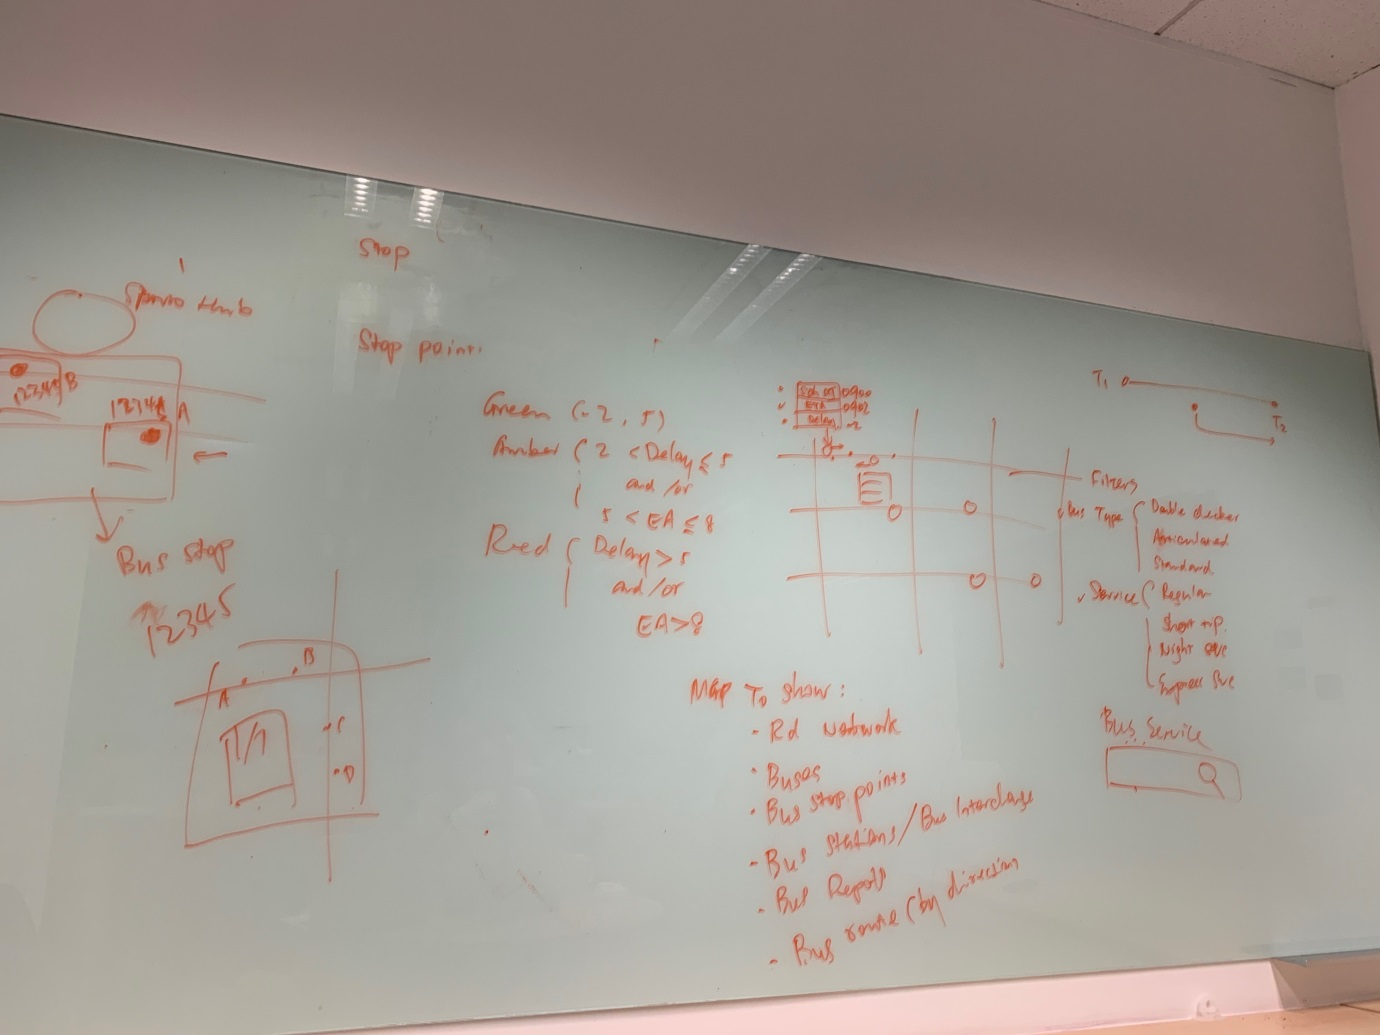 Stop
Stop point.
Hub
12345 B
A
Bus Stop
12345
A
B
C
D
Green (-2, 5)
Amber ( 2 < Delay ≤ 5
and/or
5 < EA ≤ 8
Red ( Delay > 5
and/or
EA > 8
0900
ETA 0902
Delay -2
T1
T2
Filters
Bus Type ( Double decker
Standard
Service ( Regular
Short trip.
Night Sve
Express Sve
Bus Service
Map To show:
- Rd Network
- Buses
- Bus stop points
- Bus Stations/Bus Interchange
- Bus Depots
- Bus route (by direction